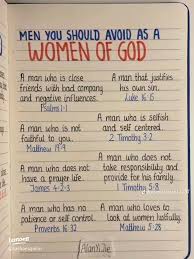 MEN YOU SHOULD AVOID AS A
WOMEN OF GOD
A man who is close
friends with bad company
and negative influences.
Psalms 1:1
A man who is not
faithful to you.
Matthew 19:9
A man who does not
have a prayer life.
James 4:2-3
A man who has no
patience or self control.
Proverbs 16:32
A man that justifies
his own sin.
Luke 16:15
A man who is selfish
and self centered.
2 Timothy 3:2
A man who does not
take responsibility and
provide for his family.
1 Timothy 5:8
A man who loves to
look at women lustfully.
Matthew 5:28